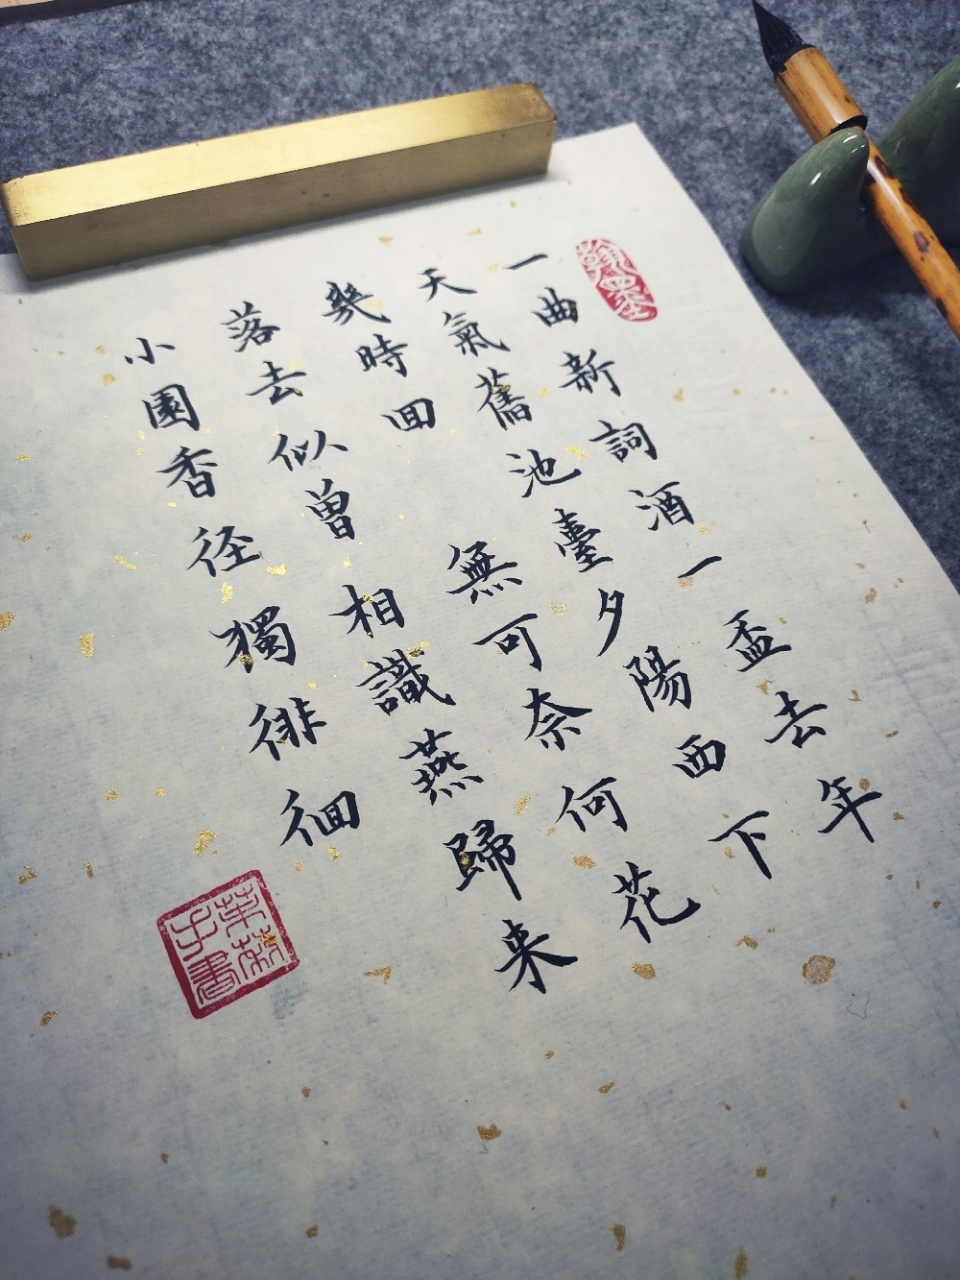 翰墨
一曲新詞酒一盃去年
天氣舊池臺夕陽西下
幾時回 無可奈何花
落去似曾相識燕歸来
小園香径獨徘徊
茉莉手書